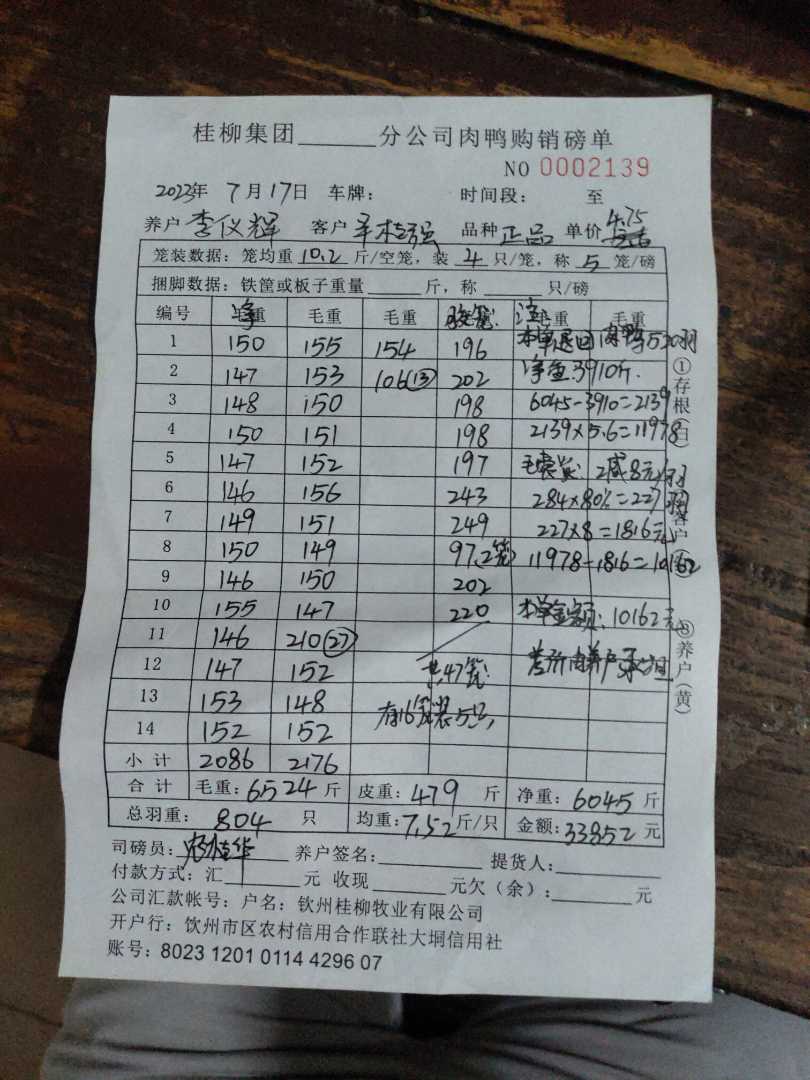 桂柳集团______分公司肉鸭购销磅单
NO 0002139
2023年 7月17日 车牌： 时间段： 至
养户 李仪辉 客户 品种 正品 单价 4.75
笼装数据：笼均重 10.2 斤/空笼，装 4 只/笼，称 5 笼/磅
捆脚数据：铁筐或板子重量______斤，称______只/磅
编号 净重 毛重 毛重 毛重 毛重
1 150 155 154 196 本单退回肉鸭520羽
2 147 153 106(13) 202 净重:3910斤.
3 148 150 198 6045-3910=2139
4 150 151 198 2139×5.6=11978
5 147 152 197 减8元/羽
6 146 156 243 284×80%=227羽
7 149 151 249 227×8=1816元
8 150 149 97(2笼) 11978-1816=10162
9 146 150 202
10 155 147 220 本单金额：10162元
11 146 210(27)
12 147 152 共47笼 差价由养户承担
13 153 148 有16笼装5只
14 152 152
小计 2086 2176
合计 毛重：6524斤 皮重：479 斤 净重：6045斤
总羽重：804 只 均重：7.52斤/只 金额：33852元
司磅员： 养户签名：________ 提货人：________
付款方式：汇______元 收现______元欠（余）：______元
公司汇款帐号：户名：钦州桂柳牧业有限公司
开户行：饮州市区农村信用合作联社大垌信用社
账号：8023 1201 0114 4296 07
①存根（白） ②客户 ③养户（黄）